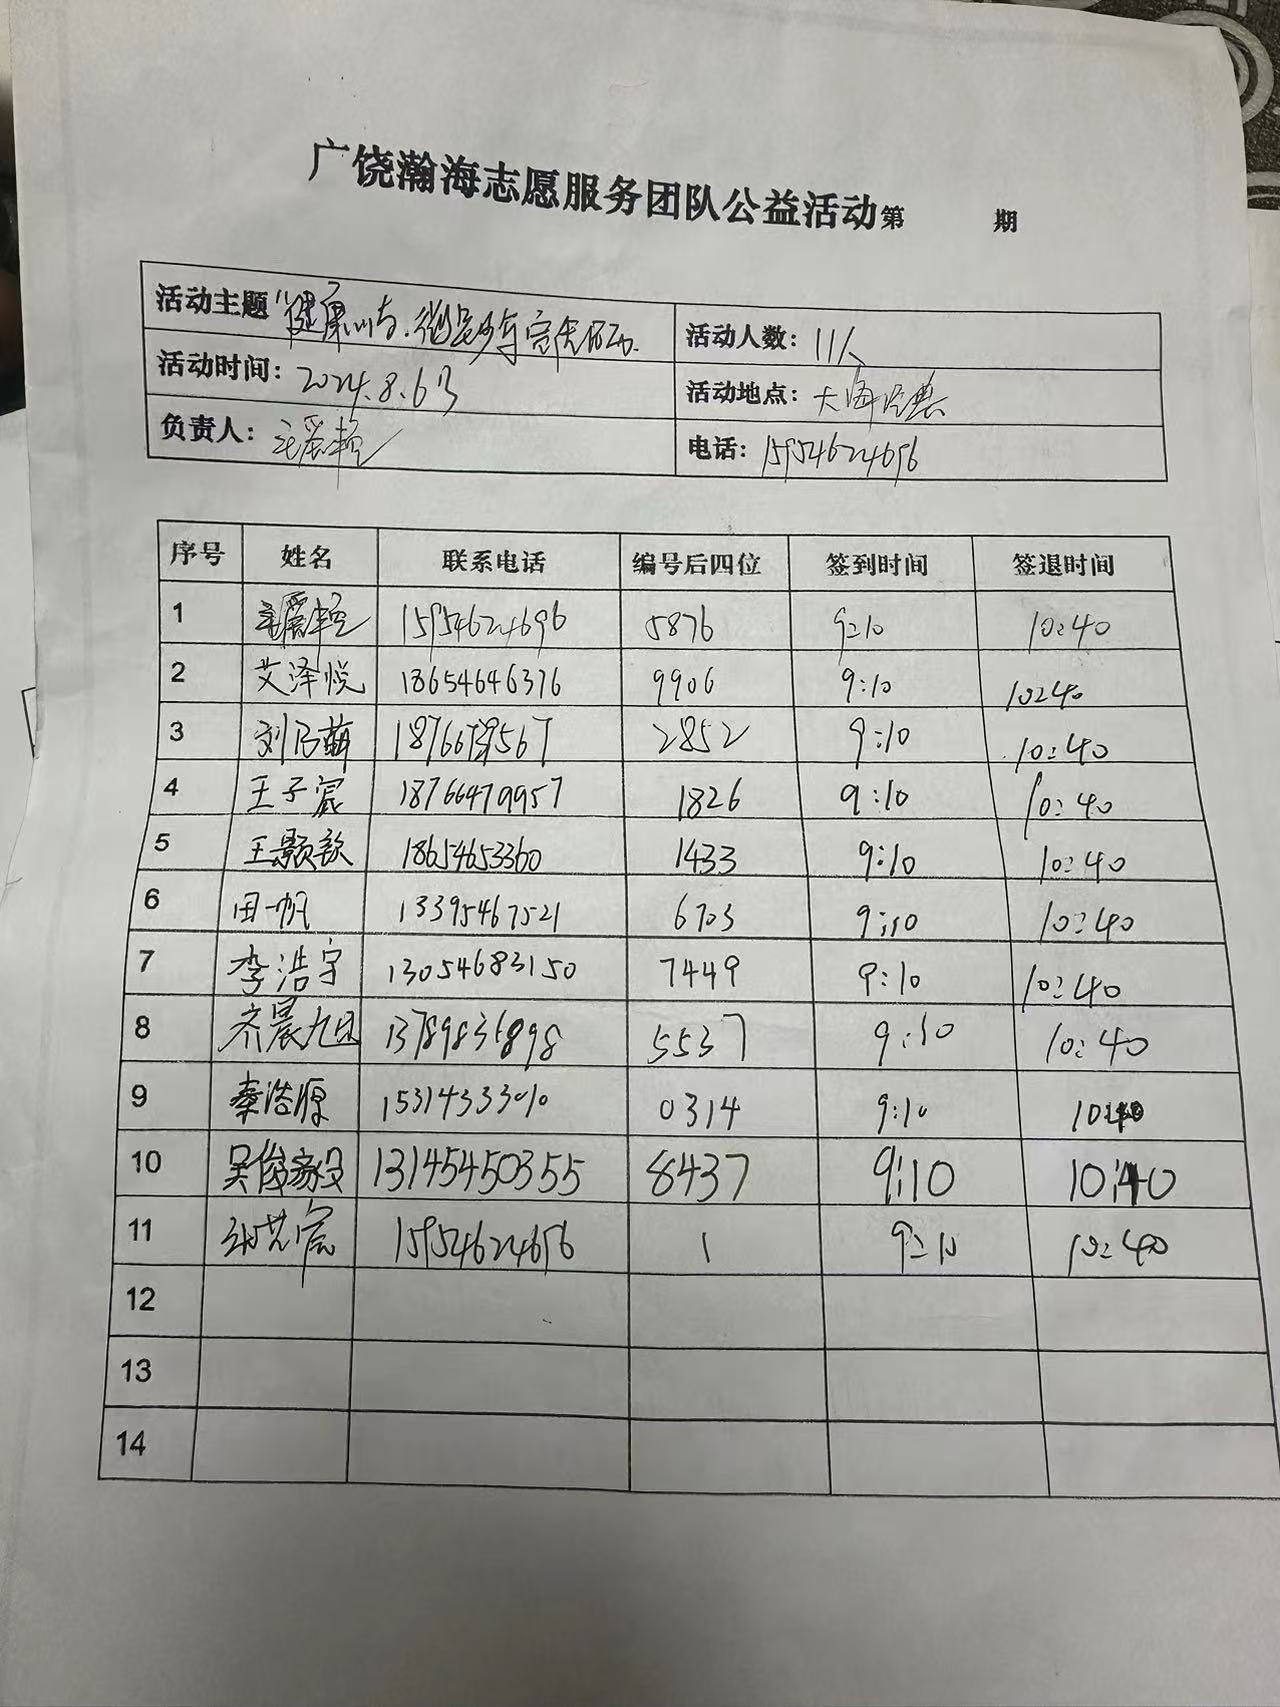 广饶瀚海志愿服务团队公益活动第 期
活动主题 "健康
活动人数： 11人
活动时间： 2024.8.6日
活动地点： 大海
负责人：
电话： 15954624696
序号 姓名 联系电话 编号后四位 签到时间 签退时间
1 15954624696 5876 9:10 10:40
2 艾泽悦 18654646376 9906 9:10 10:40
3 刘乃萌 2852 9:10 10:40
4 王子宸 18766479957 1826 9:10 10:40
5 王颢钦 18654653360 1433 9:10 10:40
6 田一帆 13395467521 6703 9:10 10:40
7 李浩宇 13054683150 7449 9:10 10:40
8 齐晨旭 13789836898 5537 9:10 10:40
9 秦浩源 15314333010 0314 9:10 10:40
10 吴俊毅 13145450355 8437 9:10 10:40
11 15954624696 1 9:10 10:40
12
13
14